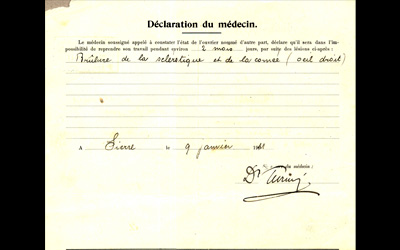 Déclaration du médecin.
Le médecin soussigné appelé à constater l'état de l'ouvrier nommé d'autre part, déclare qu'il sera dans l'im-
possibilité de reprendre son travail pendant environ 2 mois jours, par suite des lésions ci-après :
Brûlure de la sclérotique et de la cornée (oeil droit)
A Sierre le 9 janvier
du médecin :
Dr